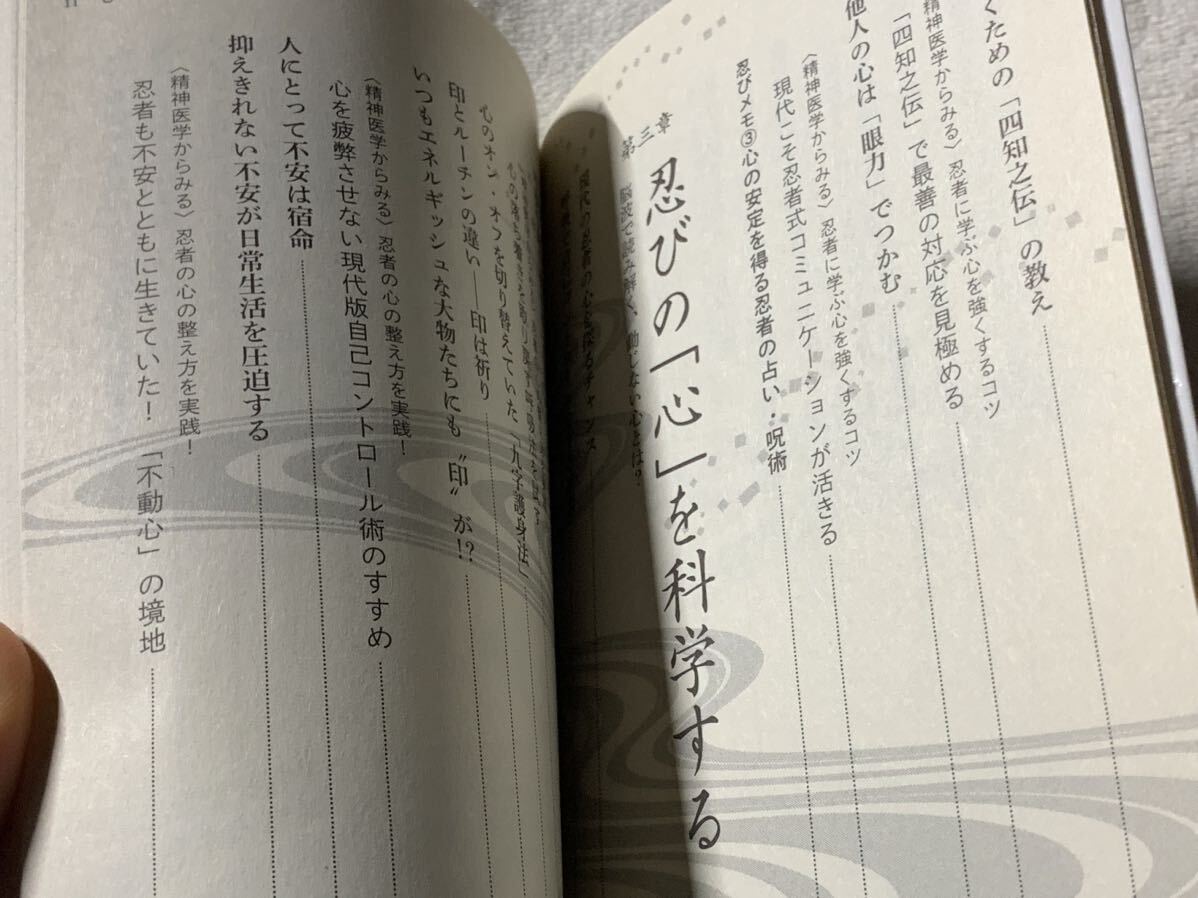 くための「四知之伝」の教え
精神医学からみる〉忍者に学ぶ心を強くするコツ
「四知之伝」で最善の対応を見極める
他人の心は「眼力」でつかむ
〈精神医学からみる〉忍者に学ぶ心を強くするコツ
現代こそ忍者式コミュニケーションが活きる
忍びメモ③心の安定を得る忍者の占い・呪術
第三章
忍びの「心」を科学する
脳波で読み解く、動じない心とは?
の忍者の心を探るチャンス
心の落ち着きを取り戻す呼吸法を試す
心のオン・オフを切り替えていた「九字護身法」
印とルーチンの違い——印は祈り
いつもエネルギッシュな大物たちにも〝印〟が!?
〈精神医学からみる〉忍者の心の整え方を実践!
心を疲弊させない現代版自己コントロール術のすすめ
人にとって不安は宿命
抑えきれない不安が日常生活を圧迫する
〈精神医学からみる〉忍者の心の整え方を実践!
忍者も不安とともに生きていた!「不動心」の境地